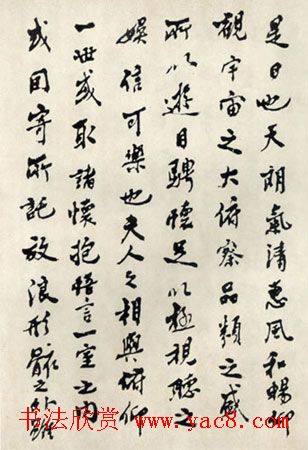 是日也天朗氣清惠風和暢仰
觀宇宙之大俯察品類之盛
所以遊目騁懷足以極視聽之
娛信可樂也夫人之相與俯仰
一世或取諸懷抱悟言一室之內
或因寄所託放浪形骸之外雖
书法欣赏 www.yac8.com